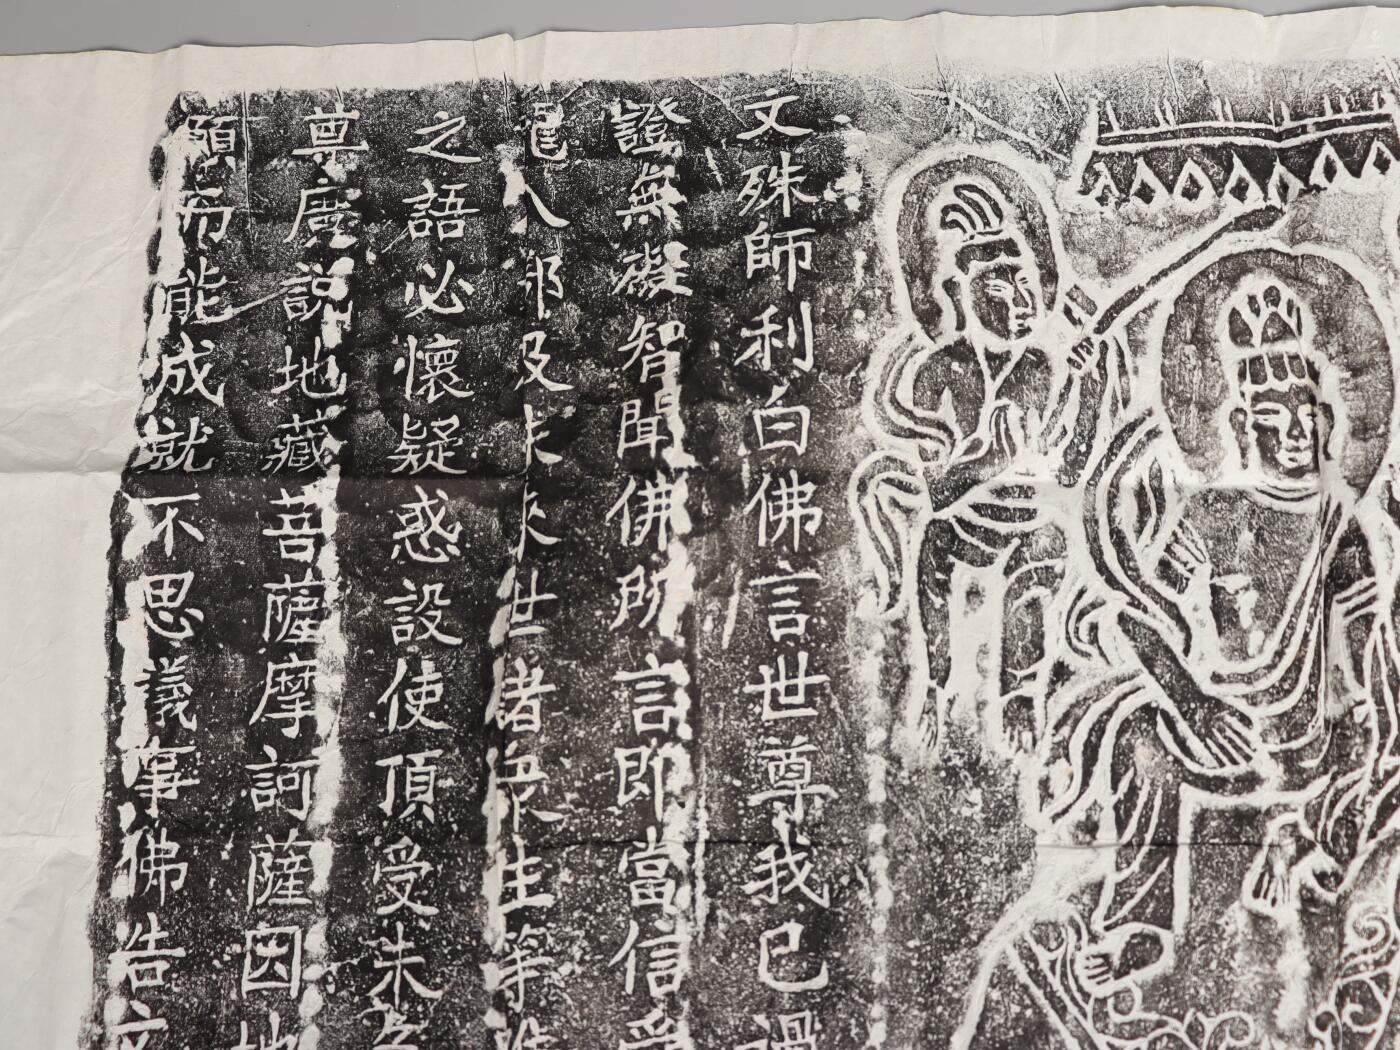 文殊師利白佛言世尊我已過
證無礙智聞佛所言即當信受
龍八部及未來世諸衆生等雖
之語必懷疑惑設使頂受未
尊廣説地藏菩薩摩訶薩因地
願而能成就不思議事佛告文